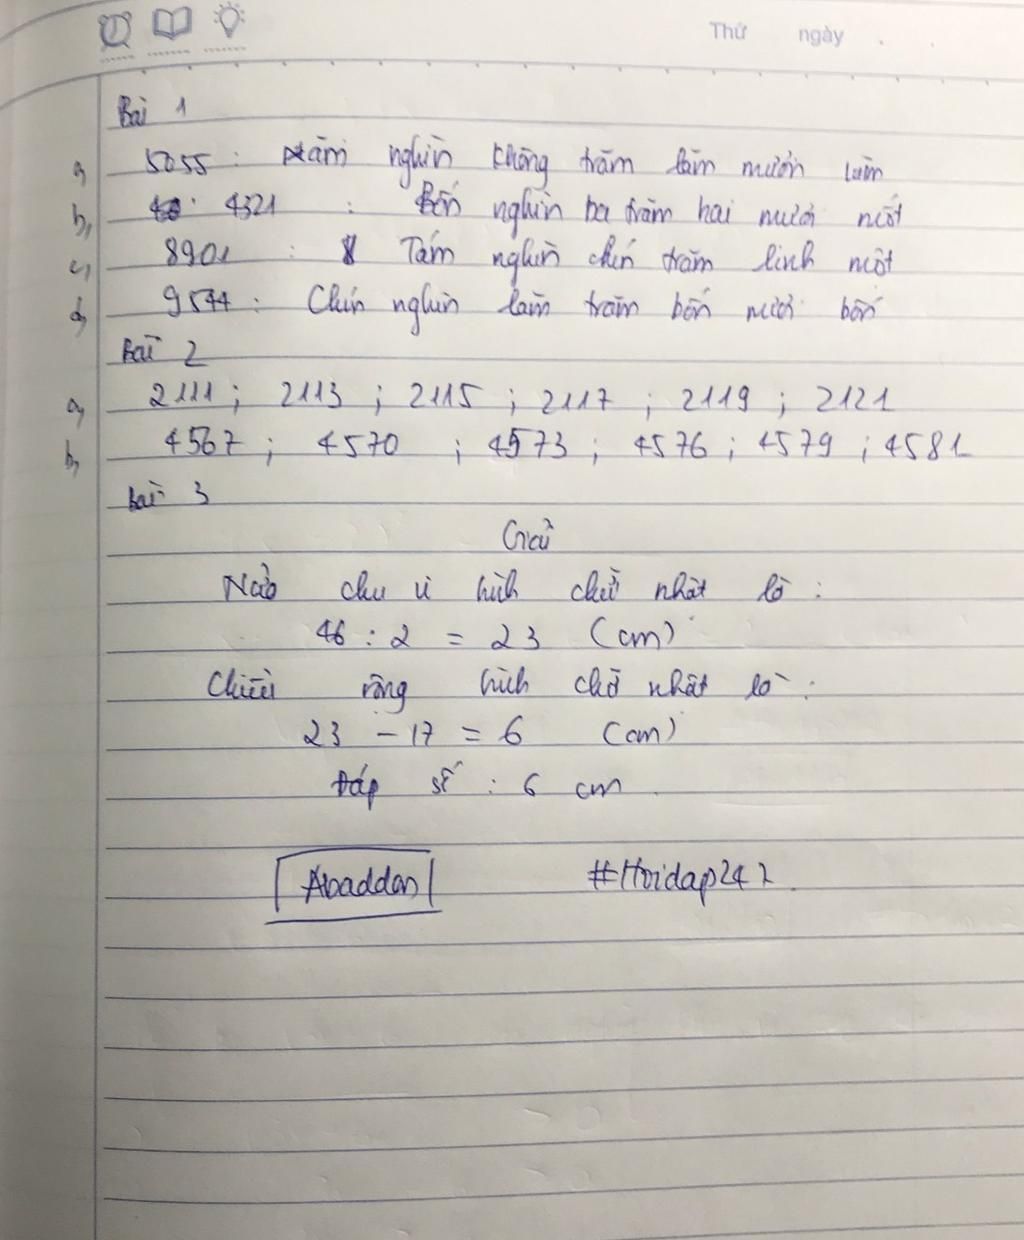 Thứ ngày
Bài 1
a, 5055 : Năm nghìn không trăm lăm mươi lăm
b, 4321 : Bốn nghìn ba trăm hai mươi mốt
c, 8901 : Tám nghìn chín trăm linh một
d, 9544 : Chín nghìn lăm trăm bốn mươi bốn
Bài 2
a, 2111 ; 2113 ; 2115 ; 2117 ; 2119 ; 2121
b, 4567 ; 4570 ; 4573 ; 4576 ; 4579 ; 4581
bài 3
Giải
Nửa chu vi hình chữ nhật là :
46 : 2 = 23 (cm)
Chiều rộng hình chữ nhật là :
23 - 17 = 6 (cm)
Đáp số : 6 cm
Abaddon #Hoidap247